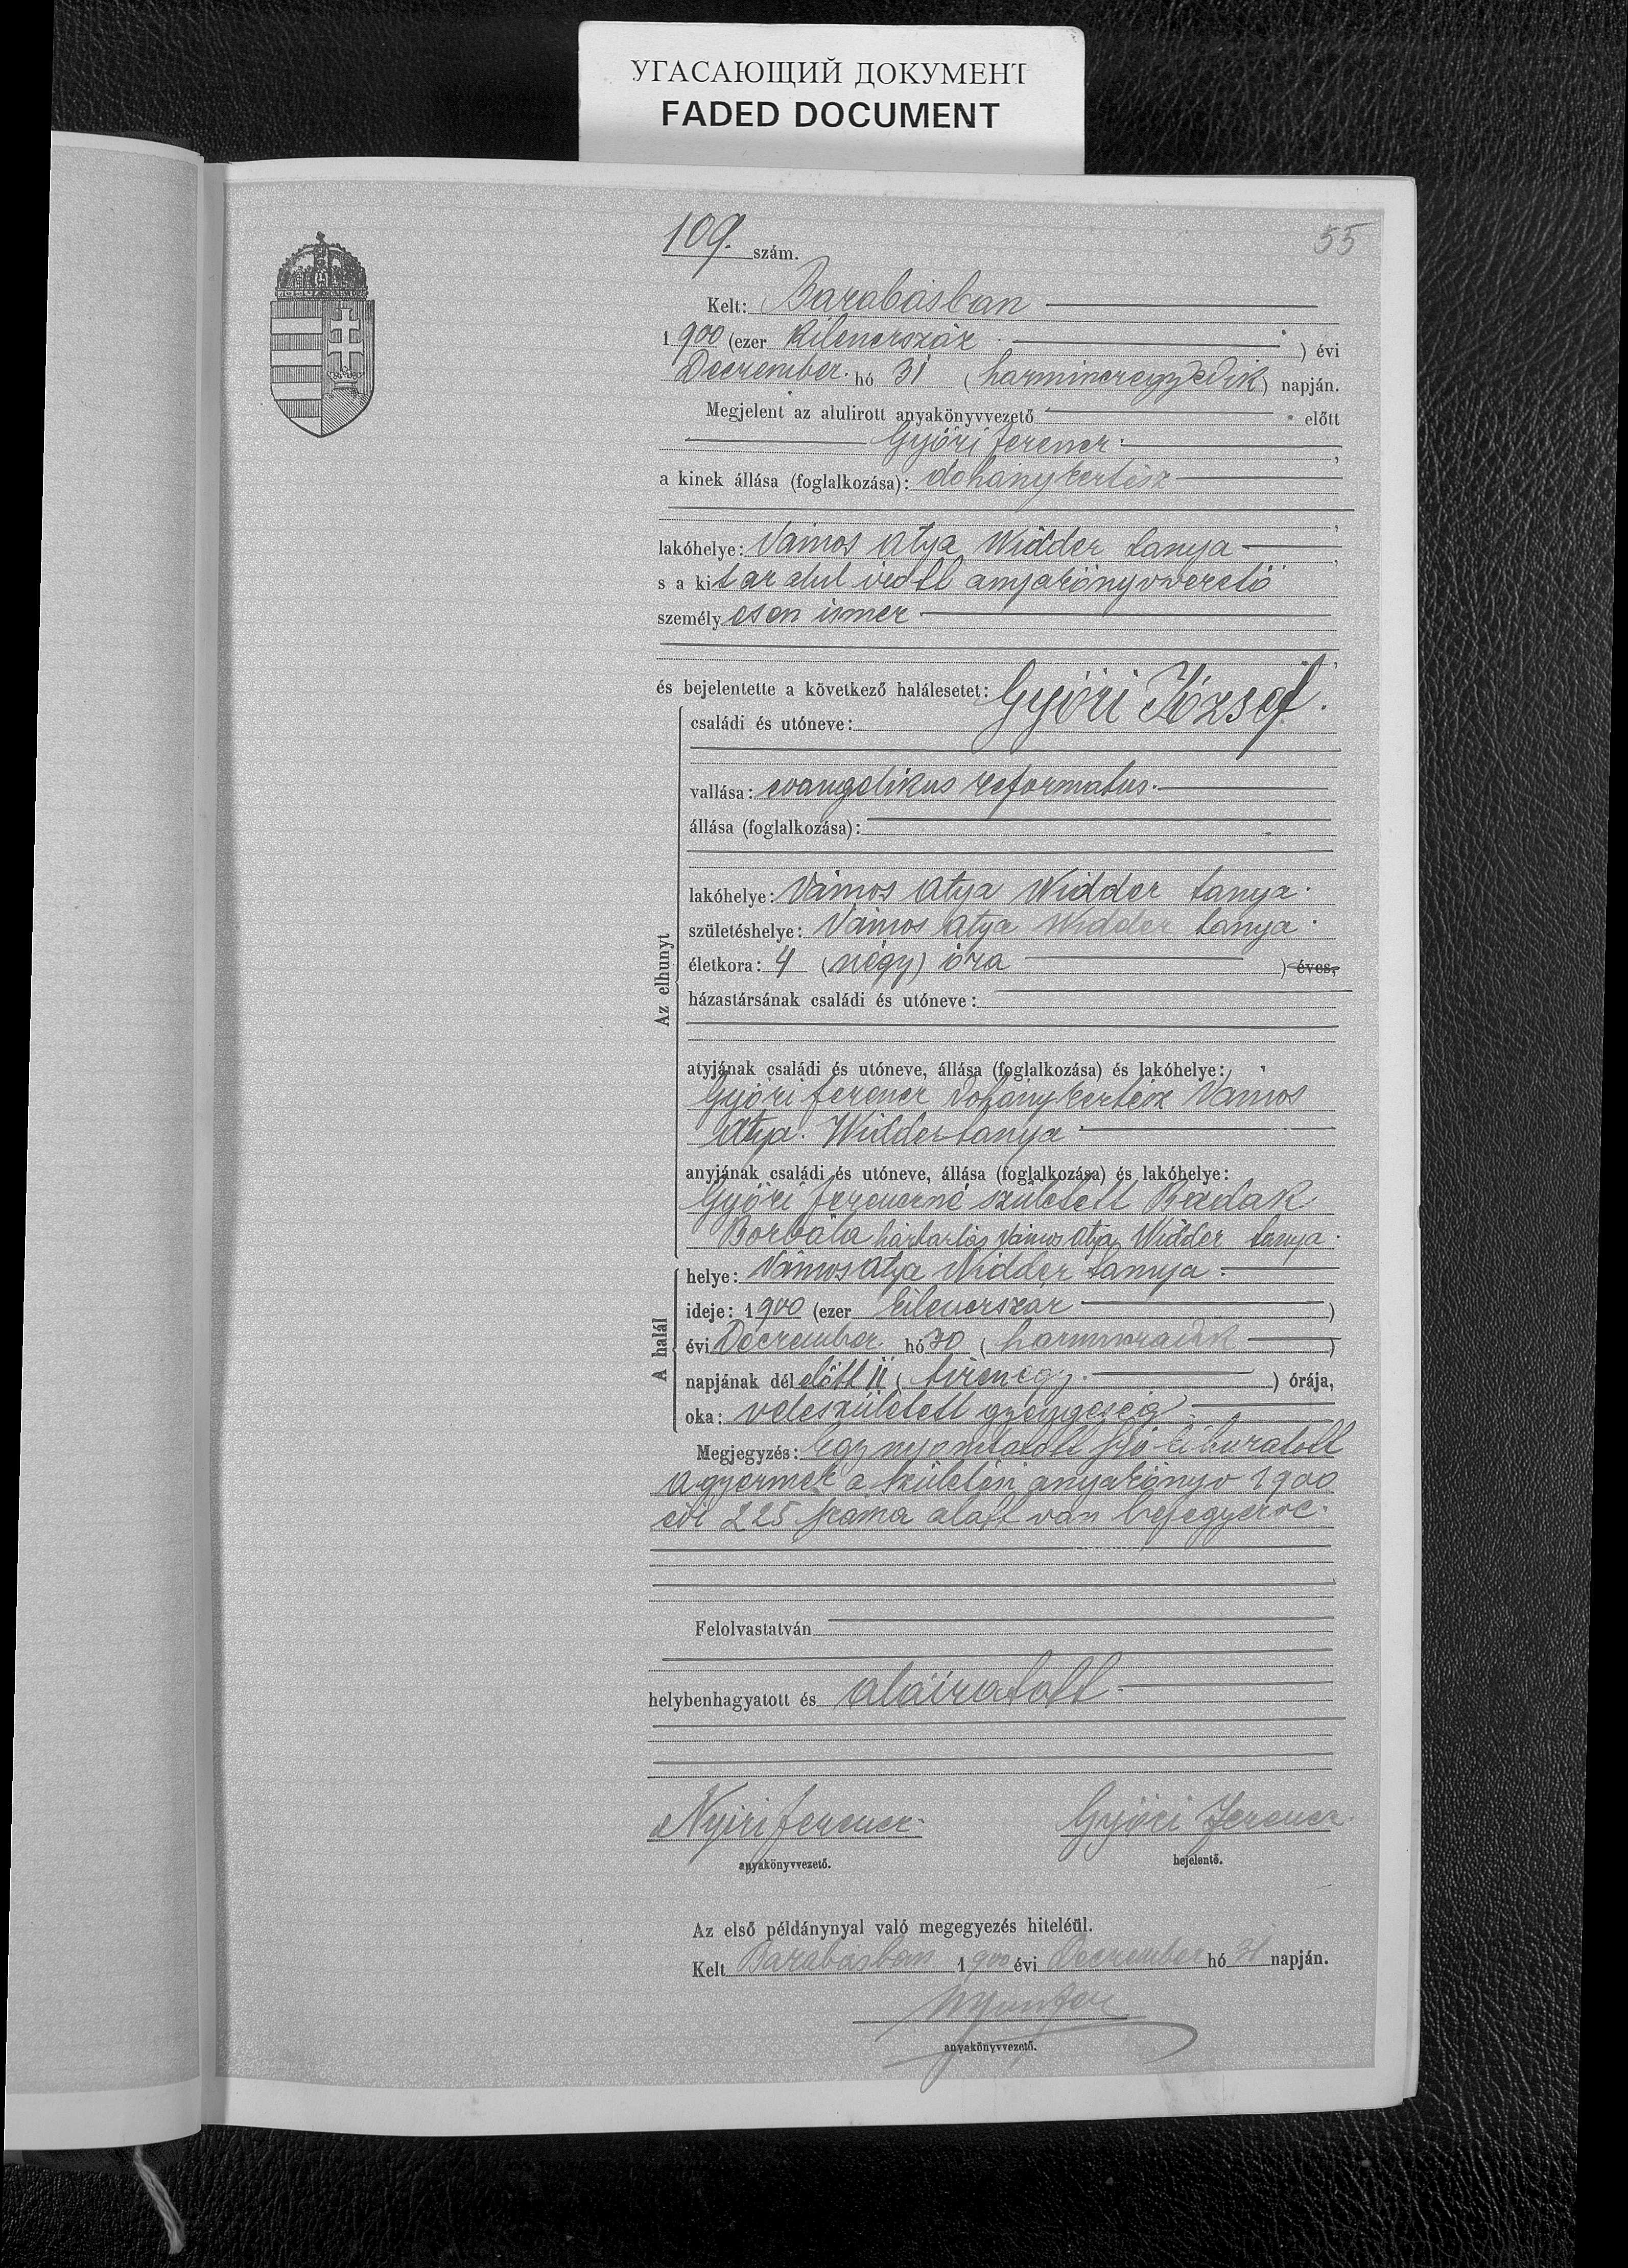 УГАСАЮЩИЙ ДОКУМЕНТ
FADED DOCUMENT
55
109. szám.
Kelt: Barabásban
1900 (ezer kilenczszáz ) évi
Deczember hó 31 (harminczegyedik) napján.
Megjelent az alulirott anyakönyvvezető előtt
Győri Ferencz
a kinek állása (foglalkozása): dohánykertész
lakóhelye: Vámos Atya Widder tanya
s a kit az alul irott anyakönyvvezető
személyesen ismer
és bejelentette a következő halálesetet:
Az elhunyt
családi és utóneve: Győri József.
vallása: evangelikus reformatus.
állása (foglalkozása):
lakóhelye: Vámos Atya Widder tanya.
születéshelye: Vámos Atya Widder tanya.
életkora: 4 (négy) óra ) éves,
házastársának családi és utóneve:
atyjának családi és utóneve, állása (foglalkozása) és lakóhelye:
Győri Ferencz dohánykertész Vámos
Atya. Widder tanya
anyjának családi és utóneve, állása (foglalkozása) és lakóhelye:
Győri Ferenczné született
Borbála háztartás Vámos Atya Widder tanya.
A halál
helye: Vámos Atya Widder tanya.
ideje: 1900 (ezer kilenczszáz )
évi Deczember hó 30 (harminczadik )
napjának dél előtt 11 (tizenegy. ) órája,
oka: veleszületett gyengeség
Megjegyzés: Egy nyomtatott szó kihuzatott
A gyermek a születési anyakönyv 1900
évi 225 száma alatt van bejegyezve.
Felolvastatván
helybenhagyatott és aláiratott
Nyiri Ferencz Győri Ferencz
anyakönyvvezető. bejelentő.
Az első példánynyal való megegyezés hiteléül.
Kelt Barabásban 1900 évi Deczember hó 31 napján.
anyakönyvvezető.